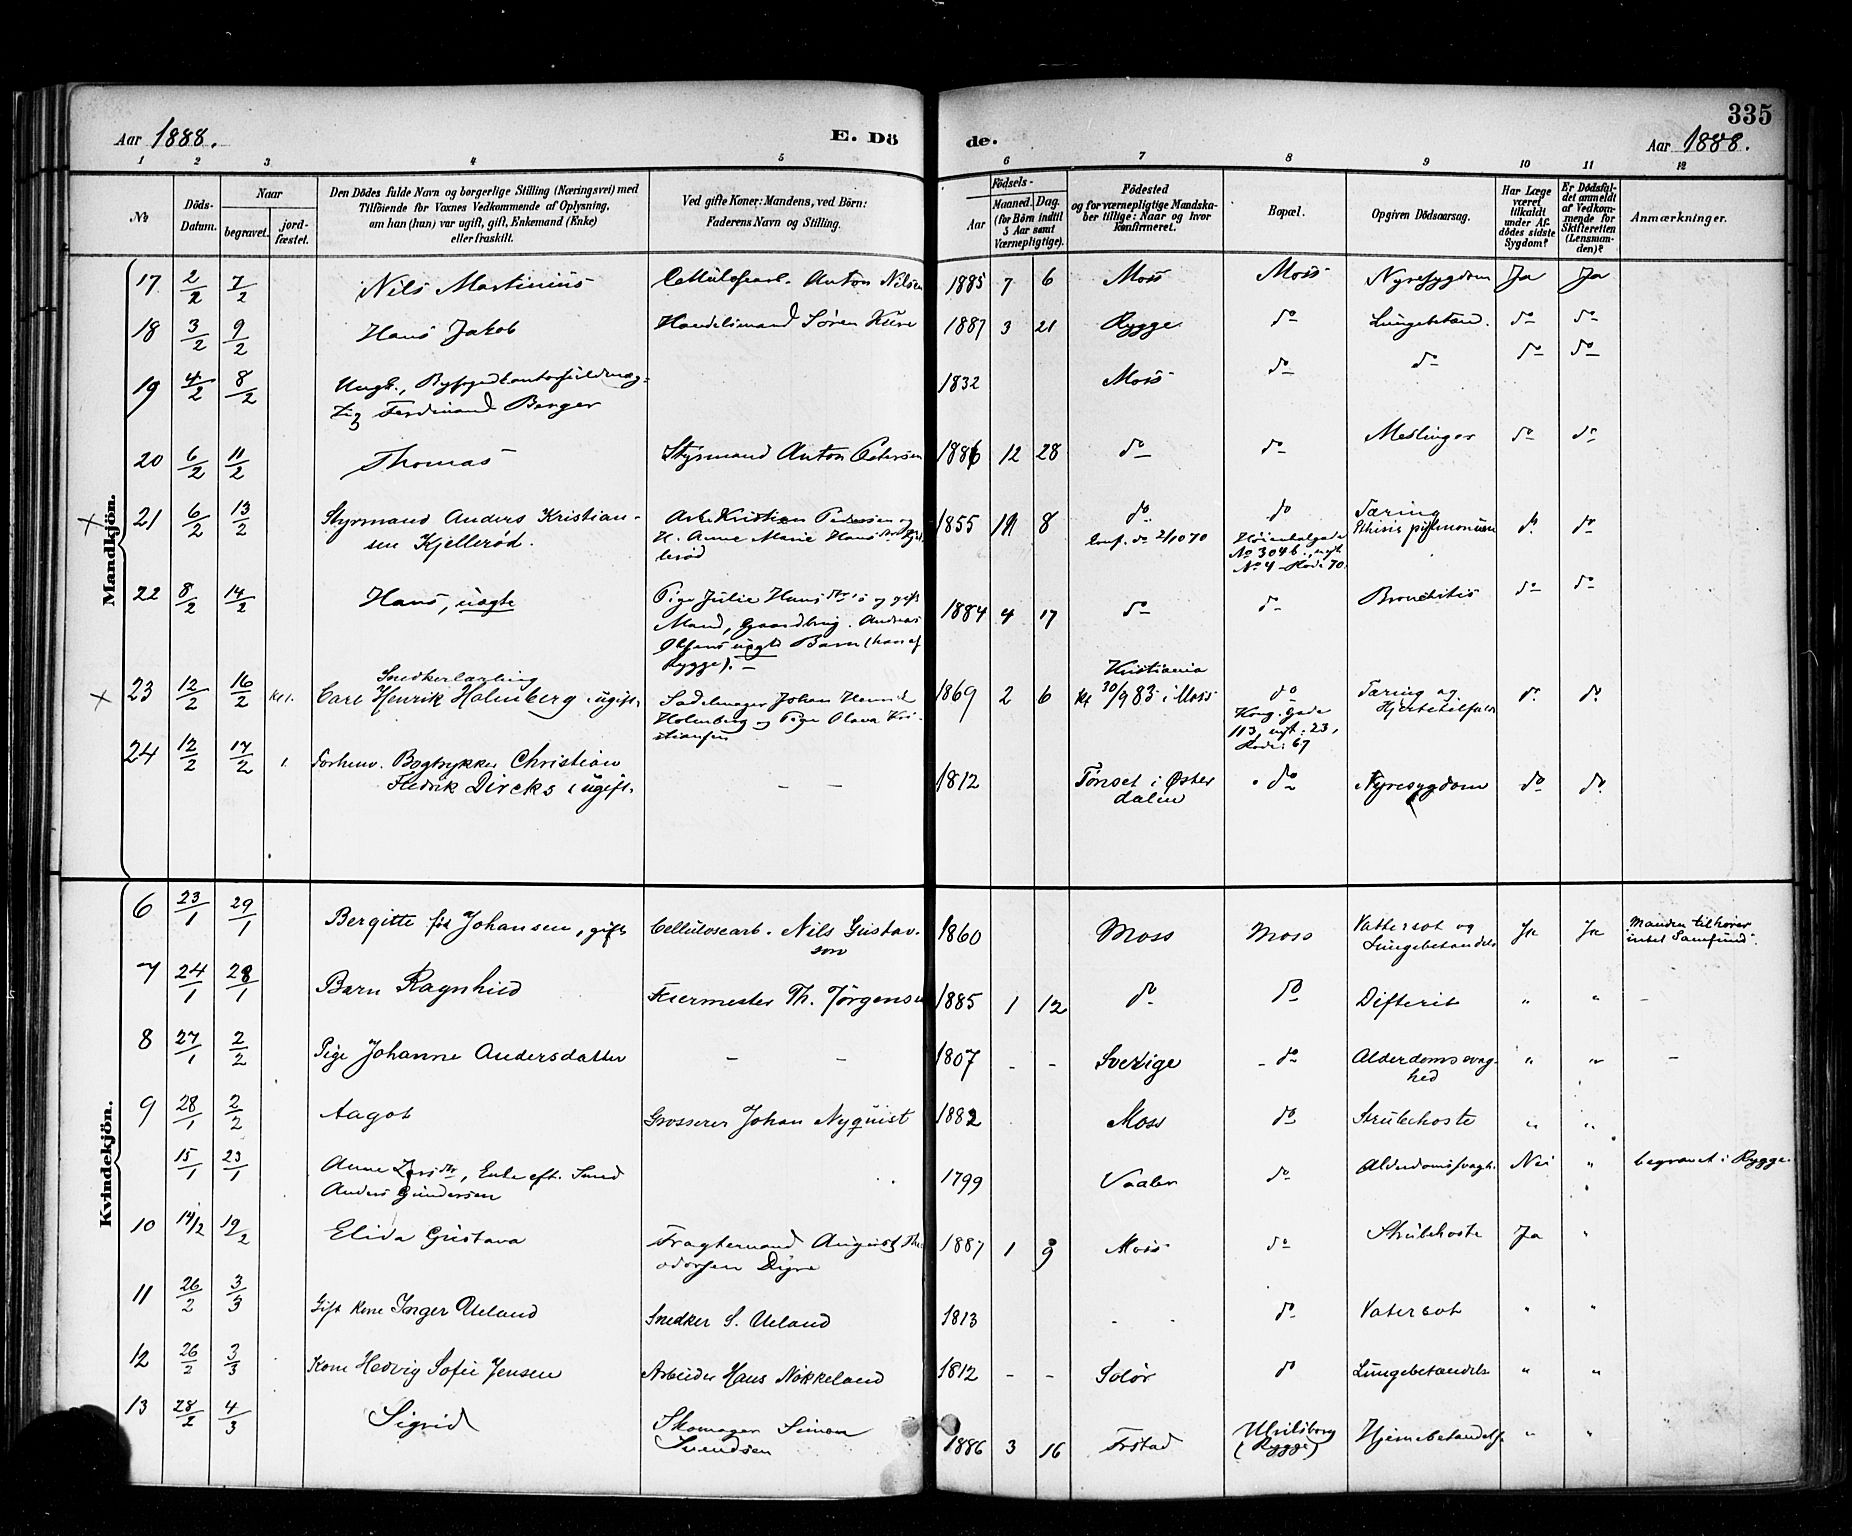 335
Aar 1888.
E. Dö
de.
Aar 1888.
1 2 3 4 5 6 7 8 9 10 11 12
No
Döds-
Datum.
Naar
begravet.
jord-
fæstet.
Den Dödes fulde Navn og borgerlige Stilling (Næringsvei) med
Tilföiende for Voxnes Vedkommende af Oplysning,
om han (hun) var ugift, gift, Enkemand (Enke)
eller fraskilt.
Ved gifte Koner: Mandens, ved Börn:
Faderens Navn og Stilling.
Födsels-
Aar
Maaned.
Dag.
(for Börn indtil
5 Aar samt
Værnepligtige).
Födested
og for værnepligtige Mandska-
ber tillige: Naar og hvor
konfirmeret.
Bopæl.
Opgiven Dödsaarsag.
Har Læge
været
tilkaldt
under Af-
dödes sidste
Sygdom?
Er Dödsfal-
det anmeldt
af Vedkom-
mende for
Skifteretten
(Lensman-
den)?
Anmærkninger.
Mandkjön.
17 2/2 7/2 Nils Martinius Cellulosearb. Anton Nilsen 1885 7 6 Moss Moss Nyresygdom Ja Ja
18 3/2 9/2 Hans Jakob Handelsmand Søren Kure 1887 3 21 Rygge do Lungebetænd. do do
19 4/2 8/2 Ungk., Byfogedkontorfuldmæg-
tig Ferdinand Berger 1832 Moss do do do do
20 6/2 11/2 Thomas Styrmand Anton Petersen 1886 12 28 do do Meslinger do do
x 21 6/2 13/2 Styrmand Anders Kristian-
sen Kjellerød. Arb. Kristian Pedersen og
H. Anne Marie Hansdtr
lerød 1855 8 do
konf. do 2/10 70 do
No 304 b., nyt
No 4 - Rode 70. Tæring
Pthisis pulmonum do do
22 8/2 14/2 Hans, uægte Pige Julie Hansdtr's og gift
Mand, Gaardbrug. Andreas
Olsens uægte Barn (han af
Rygge). 1884 4 17 do do Bronchitis do do
x 23 12/2 16/2 kl 1. Snedkerlærling
Carl Henrik Holmberg, ugift. Sadelmager Johan Henrik
Holmberg og Pige Olava Kri-
stiansen 1869 2 6 Kristiania
kf 30/9 83 i Moss do
Kong. Gade
113, nyt: 23,
Rode: 67 Tæring og
Hjertetilfælde do do
24 12/2 17/2 1. Forhenv. Bogtrykker Christian
Fredrik Dircks, ugift. — — 1812 Tönset i Øster
dalen do Nyresygdom do do
Kvindekjön.
6 23/1 29/1 Bergitte fød Johansen, gift Cellulosearb. Nils Gustav-
son 1860 Moss Moss Vattersot og
Lungebetændels Ja Ja Manden tilhører
"intet Samfund".
7 24/1 28/1 Barn Ragnhild Fiermester Th. Jørgensen 1885 1 12 do do Difterit " " -
8 27/1 2/2 Pige Johanne Andersdatter — — 1807 - - Sverige do Alderdomssvag-
hed " " -
9 28/1 2/2 Aagot Grosserer Johan Nyquist 1882 Moss do Strubehoste " "
15/1 23/1 Anne Larsdtr, Enke eft. Smed
Anders Gundersen 1799 Vaaler do Alderdomssvagh. Nei " begravet i Rygge.
10 14/2 19/2 Elida Gustava Fragtemand August The
odorsen Dyre 1887 1 9 Moss do Strubehoste Ja "
11 26/2 3/3 Gift Kone Inger Ueland Snedker S. Ueland 1813 - - do Vatersot " "
12 26/2 3/3 Kone Hedvig Sofie Jensen Arbeider Hans Nøkkeland 1812 - - Solør do Lungebetændels " "
13 28/2 4/3 Sigrid Skomager Simon
Svendsen 1886 3 16 Frstad Ulriksborg
(Rygge) Hjernebetændelse " "